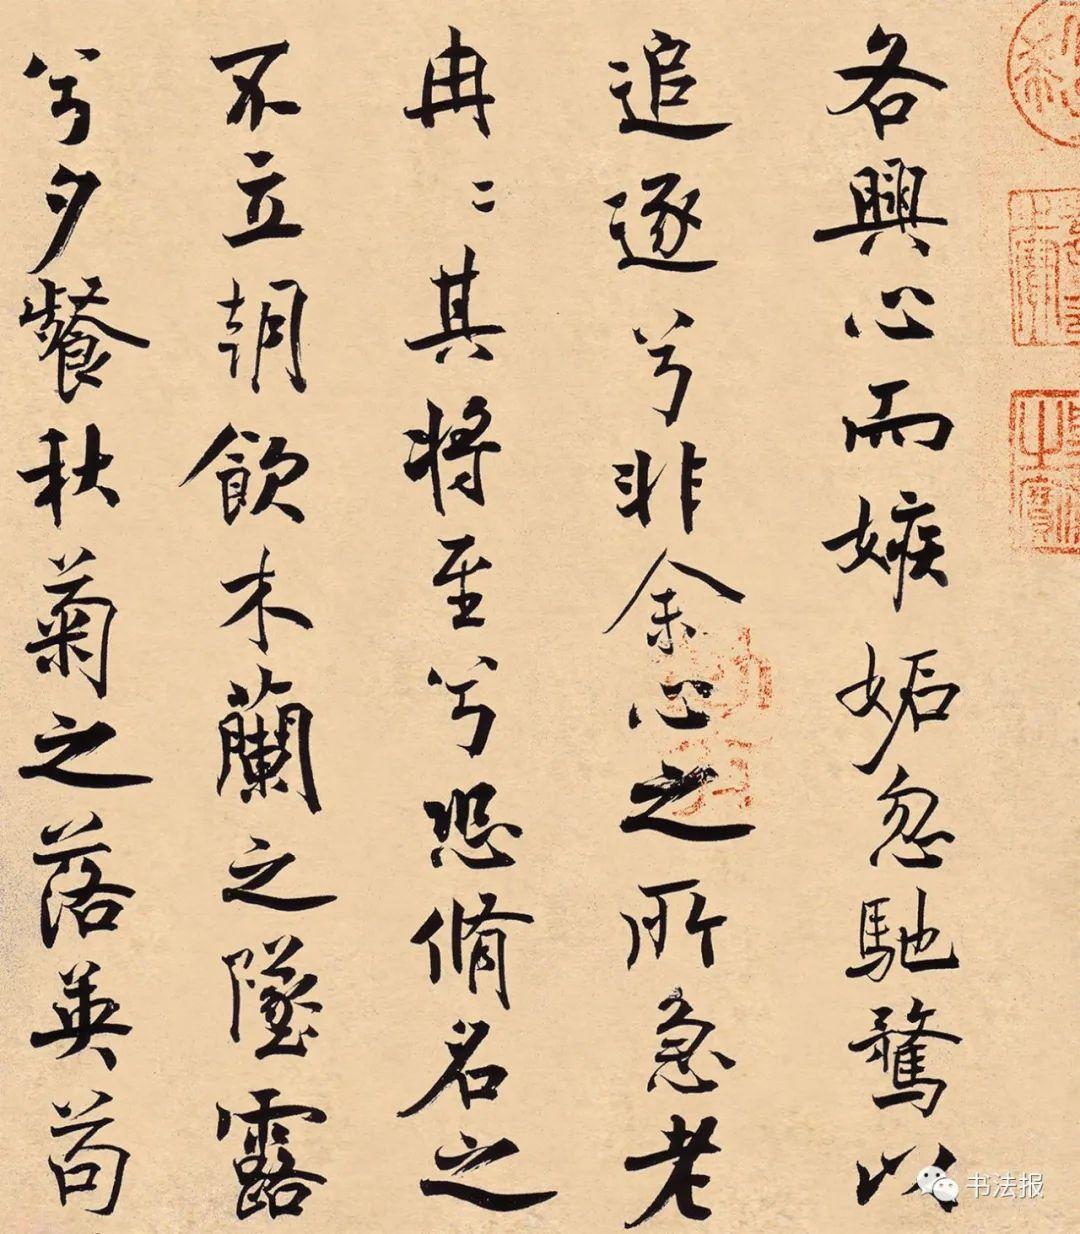 各興心而嫉妬忽馳騖以
追逐兮非余心之所急老
冉〻其將至兮恐脩名之
不立朝飲木蘭之墜露
兮夕餐秋菊之落英苟
书法报